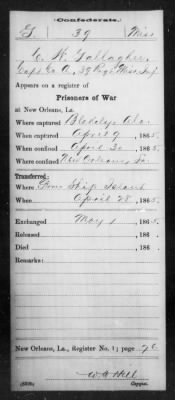 Confederate.
G 39 Miss
C. W. Gallagher
Capt Co A, 39 Reg't Miss. Inf.
Appears on a register of
Prisoners of War
at New Orleans, La.
Where captured Blakely Ala.
When captured April 9, 1865.
When confined April 30, 1865.
Where confined New Orleans, La.
Transferred:
Where From Ship Island
When April 28, 1865.
Exchanged May 1, 1865.
Released , 186 .
Died , 186 .
Remarks:
New Orleans, La., Register No. 1; page 76
Hill
Copyist.